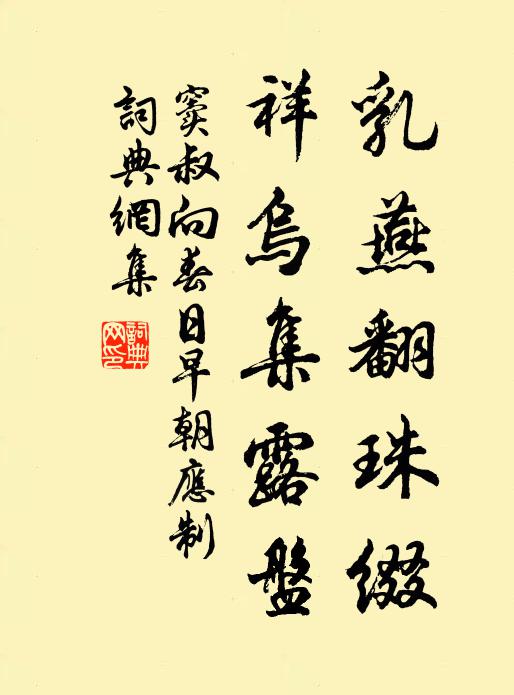 乳燕翻珠缀
祥烏集露盤
竇叔向春日早朝應制
詞典網集
詞典网印